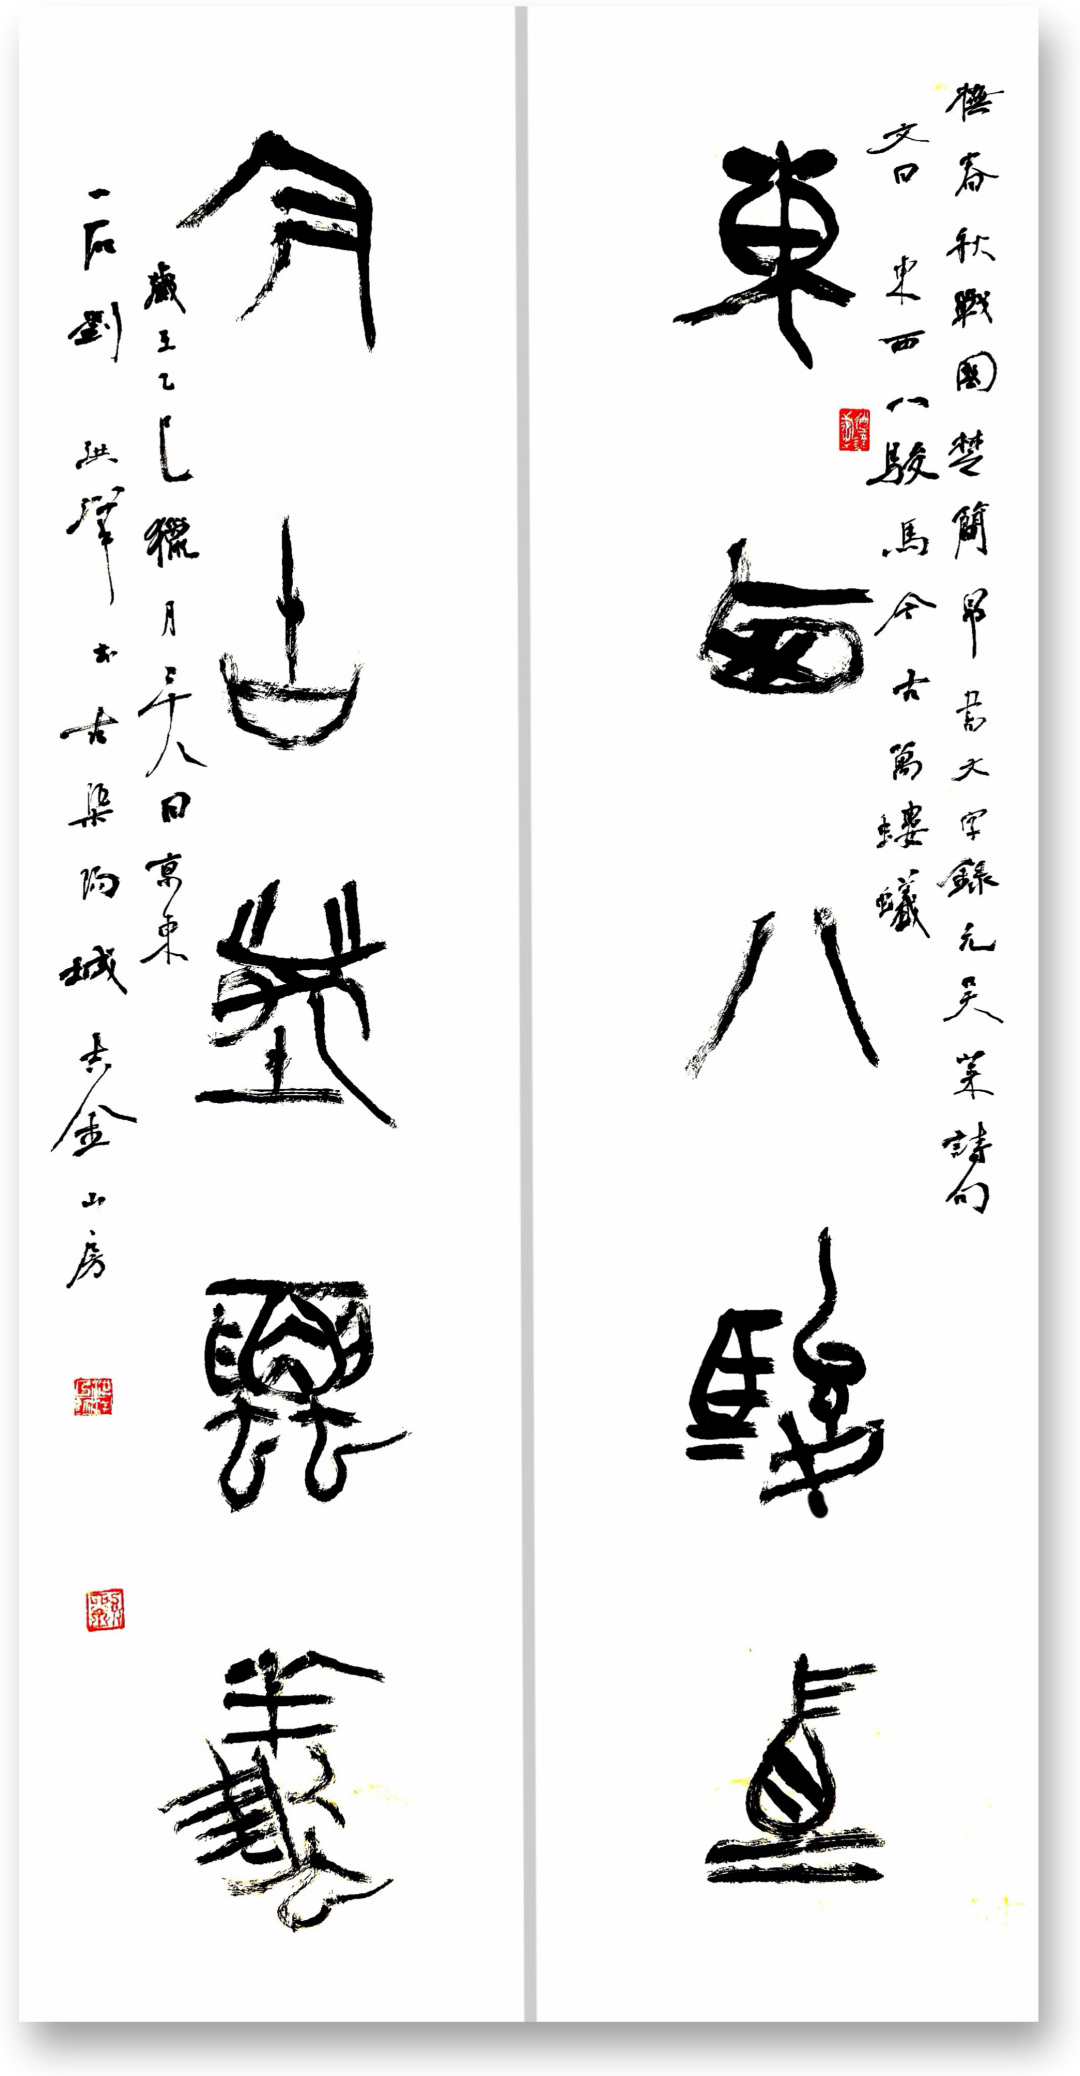 橅春秋戰國楚簡帛書文字錄元吳萊詩句
文曰 東西八駿馬今古萬螻蟻
東西八駿馬
今古萬螻蟻
歲至乙巳獵月二十八日京東
一石劉洪澤书古渠陽城吉金山房